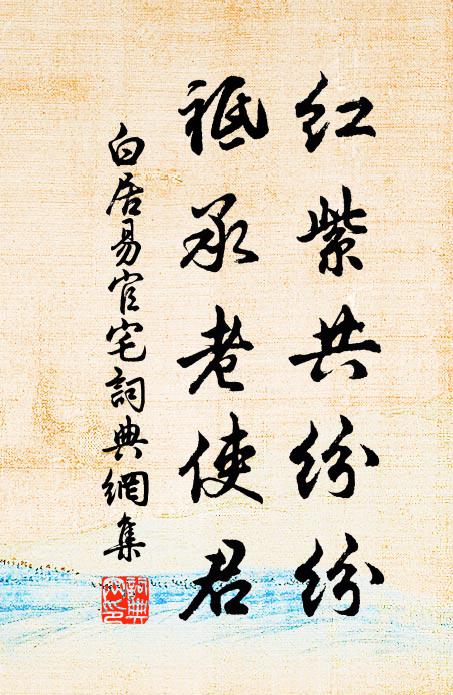 红紫共纷纷
祗承老使君
白居易官宅詞典網集